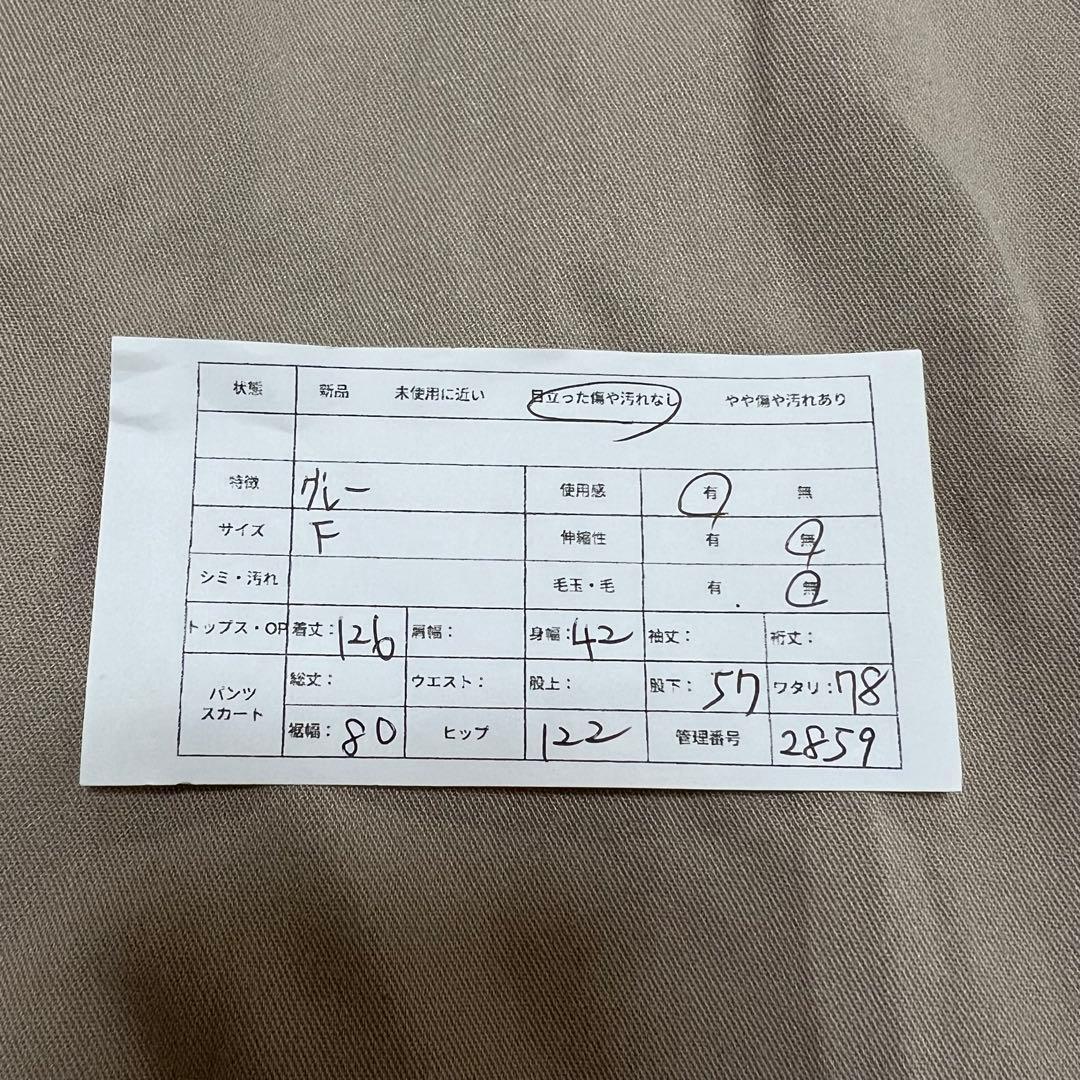 状態 新品 未使用に近い 目立った傷や汚れなし やや傷や汚れあり
特徴 グレー 使用感 有 無
サイズ F 伸縮性 有 無
シミ・汚れ 毛玉・毛 有 無
トップス・OP 着丈：126 肩幅： 身幅：42 袖丈： 裄丈：
パンツ 総丈： ウエスト： 股上： 股下：57 ワタリ：78
スカート 裾幅：80 ヒップ 122 管理番号 2859